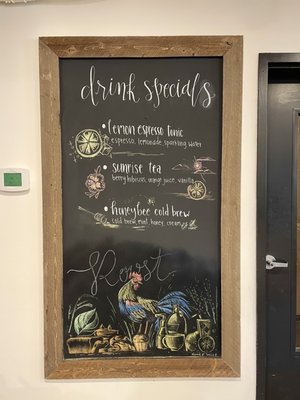 drink specials
• lemon espresso tonic
espresso, lemonade, sparkling water
• sunrise tea
berry hibiscus, orange juice, vanilla
• honeybee cold brew
cold brew, mint, honey, cream
Roost.